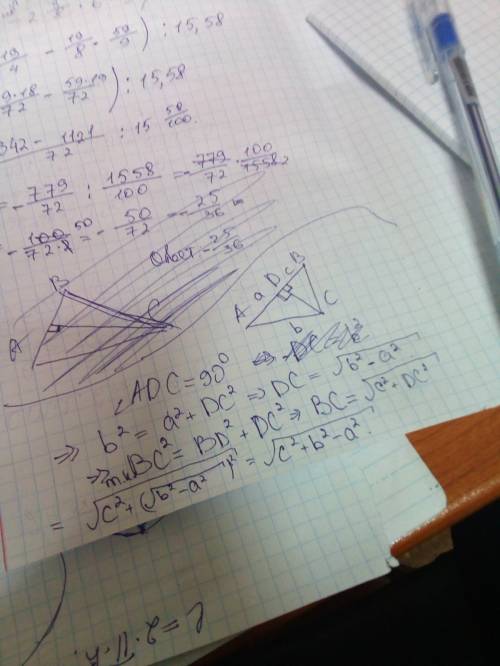 19/4 - 19/8 · 59/9) : 15,58
9·18/72 - 59·19/72) : 15,58
342 - 1121/72 : 15 58/100
= - 779/72 : 1558/100 = - 779/72 · 100/1558 2
- 100 50/72·2 = - 50/72 = - 25/36
Ответ: - 25/36
B
A
C
B
c
D
a
A
C
b
∠ADC = 90°
⇒ b² = a² + DC² ⇒ DC = √b² - a²
⇒ BC² = BD² + DC² ⇒ BC = √c² + DC²
= √c² + (√b² - a²)² = √c² + b² - a²
C = 2·π·